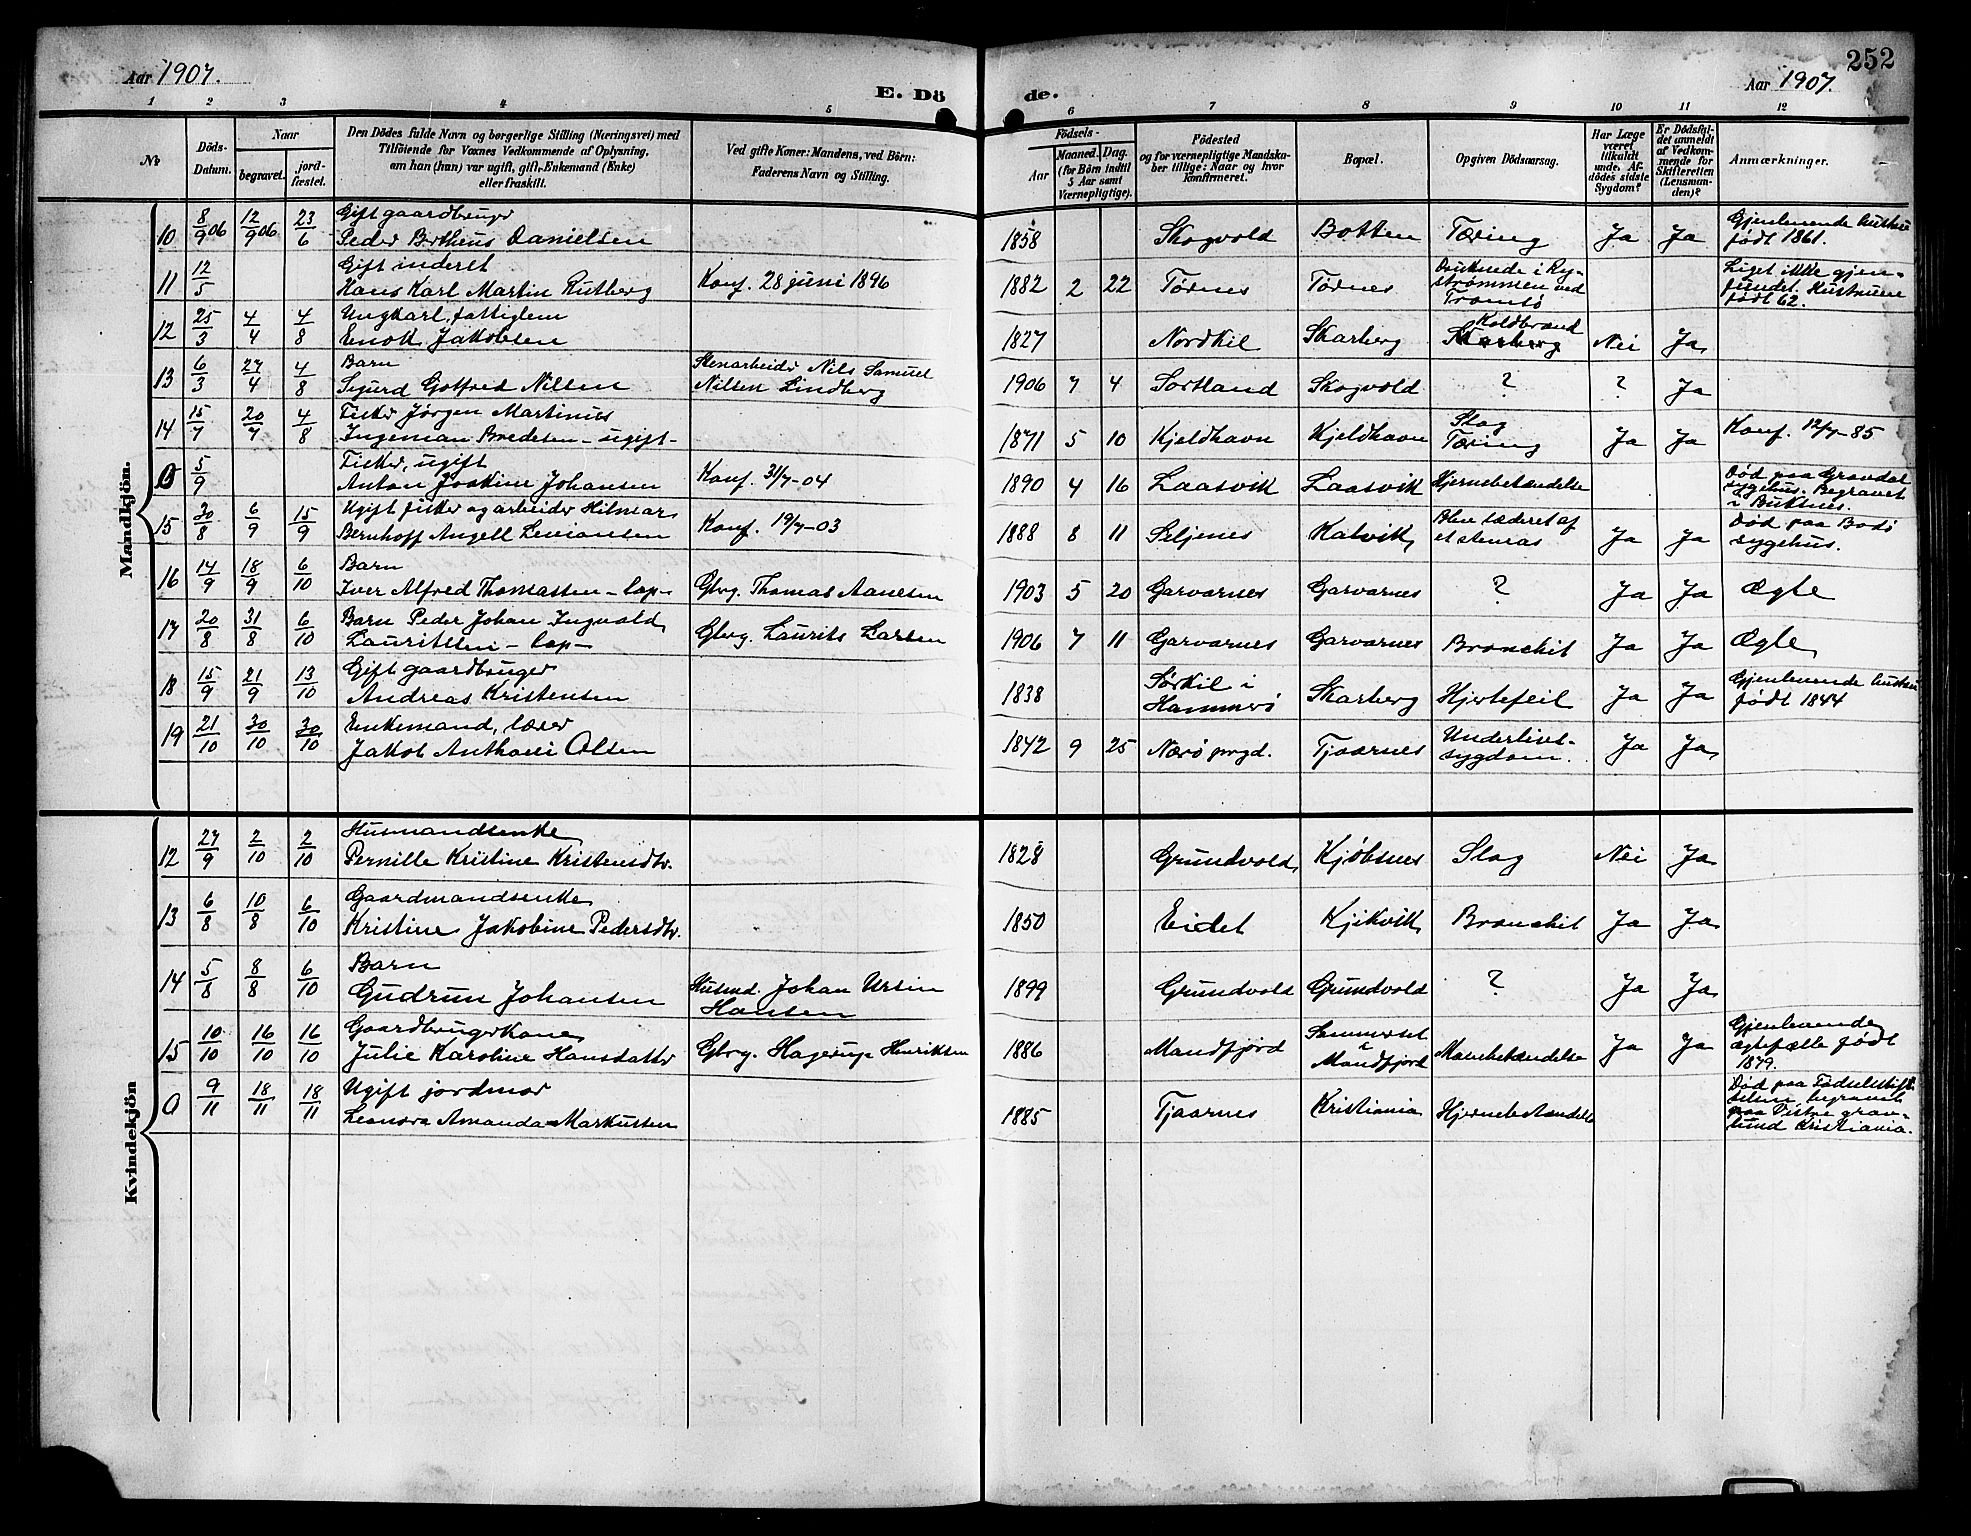 252
Aar 1907.
E. Dö de.
Aar 1907.
1 2 3 4 5 6 7 8 9 10 11 12
No
Döds-Datum.
Naar
begravet.
jord-fæstet.
Den Dödes fulde Navn og borgerlige Stilling (Næringsvei) med
Tilföiende for Voxnes Vedkommende af Oplysning,
om han (hun) var ugift, gift, Enkemand (Enke)
eller fraskilt.
Ved gifte Koner: Mandens, ved Börn:
Faderens Navn og Stilling.
Födsels-
Aar
Maaned. Dag.
(for Börn indtil
5 Aar samt
Værnepligtige).
Födested
og for værnepligtige Mandska-
ber tillige: Naar og hvor
konfirmeret.
Bopæl.
Opgiven Dödsaarsag.
Har Læge
været
tilkaldt
unde. Af-
dödes sidste
Sygdom?
Er Dödsfal-
det anmeldt
af Vedkom-
mende for
Skifteretten
(Lensman-
den)?
Anmærkninger.
Mandkjön.
10 8/9 06 12/9 06 23/6 Gift gaardbruger
Peder Bertheus Danielsen 1858 Skogvold Botten Tæring Ja Ja Gjenlevende hustru
født 1861.
11 12/5 Gift inderst
Hans Karl Martin Rutberg Konf. 28 juni 1896 1882 2 22 Tørnes Tørnes Druknede i Ry-
strømmen ved
Tromsø Liget ikke gjen-
fundet. Hustruen
født 62.
12 25/3 4/4 4/8 Ungkarl, fattiglem
Enok Jakobsen 1827 Nordkil Skarberg Koldbrand
Skarberg Nei Ja
13 6/3 27/4 4/8 Barn
Sigurd Gotfred Nilsen Stenarbeider Nils Samuel
Nilsen Lindberg 1906 7 4 Sortland Skogvold ? ? Ja
14 15/7 20/7 4/8 Fisker Jørgen Martinus
Ingeman Bredesen - ugift - 1871 5 10 Kjeldhavn Kjeldhavn Slag
Tæring Ja Ja Konf. 12/7-85
0 5/9 Fisker, ugift
Anton Joakine Johansen Konf. 31/7-04 1890 4 16 Laasvik Laasvik Hjernebetændelse Død paa Gravdal
sygehus. Begravet
i Buksnes.
15 30/8 6/9 15/9 Ugift fisker og arbeider Hilmar
Bernhoff Angell Leviansen Konf. 19/7-03 1888 8 11 Seljenes Kalvik Blev læderet af
et stenras Ja Ja Død paa Bodø
sygehus.
16 14/9 18/9 6/10 Barn
Iver Alfred Thomassen - lap - Gbrg. Thomas Aanesen 1903 5 20 Garvarnes Garvarnes ? Ja Ja Ægte
17 20/8 31/8 6/10 Barn Peder Johan Ingvald
Lauritssen - lap - Gbrg. Laurits Larsen 1906 7 11 Garvarnes Garvarnes Bronchit Ja Ja Ægte
18 15/9 21/9 13/10 Gift gaardbruger
Andreas Kristensen 1838 Sørkil i
Hammerø Skarberg Hjertefeil Ja Ja Gjenlevende hustru
født 1844
19 21/10 30/10 30/10 Enkemand, lærer
Jakob Anthoni Olsen 1842 9 25 Nærø prgd. Tjaarnes Underlivs-
sygdom. Ja Ja
Kvindekjön
12 27/9 2/10 2/10 Husmandsenke
Pernille Kristine Kristensdtr. 1828 Grundvold Kjøbsnes Slag Nei Ja
13 6/8 10/8 6/10 Gaardmandsenke
Kristine Jakobine Pedersdtr. 1850 Eidet Kjikvik Bronchit Ja Ja
14 5/8 8/8 6/10 Barn
Gudrun Johansen Husmd. Johan Ursin
Hansen 1899 Grundvold Grundvold ? Ja Ja
15 10/10 16/10 16/10 Gaardbrugerkone
Julie Karoline Hansdatter Gbrg. Hagerup Henriksen 1886 Mandfjord Sommerset
i
Mandfjord Mavebetændelse Ja Ja Gjenlevende
ægtefælle født
1879.
0 9/11 18/11 18/11 Ugift jordmor
Leonora Amanda Markussen 1885 Tjaarnes Kristiania Hjernebetændelse Død paa Fødselsstif-
telsen begravet
paa Vestre grav-
lund Kristiania.